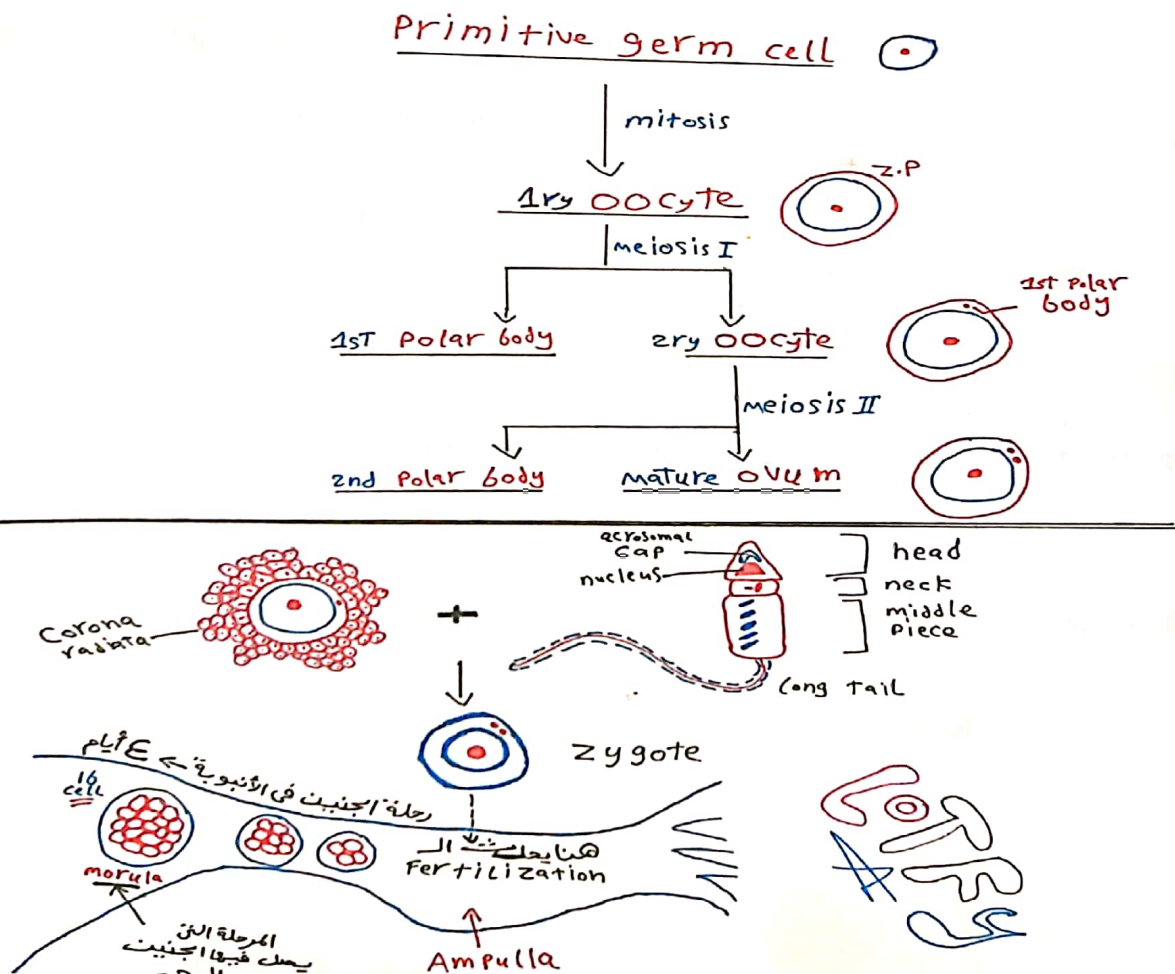 Primitive germ cell
mitosis
Z.P
1ry OOcyte
meiosis I
1st Polar body
1sT Polar body
2ry OOcyte
meiosis II
2nd Polar body
mature OVUM
acrosomal cap
nucleus
head
neck
middle piece
Corona radiata
+
Long Tail
Zygote
رحلة الجنين في الأنبوبة → ٤ أيام
16 cell
هنا يحدث الـ
Fertilization
morula
المرحلة التي
يصل فيها الجنين
Ampulla